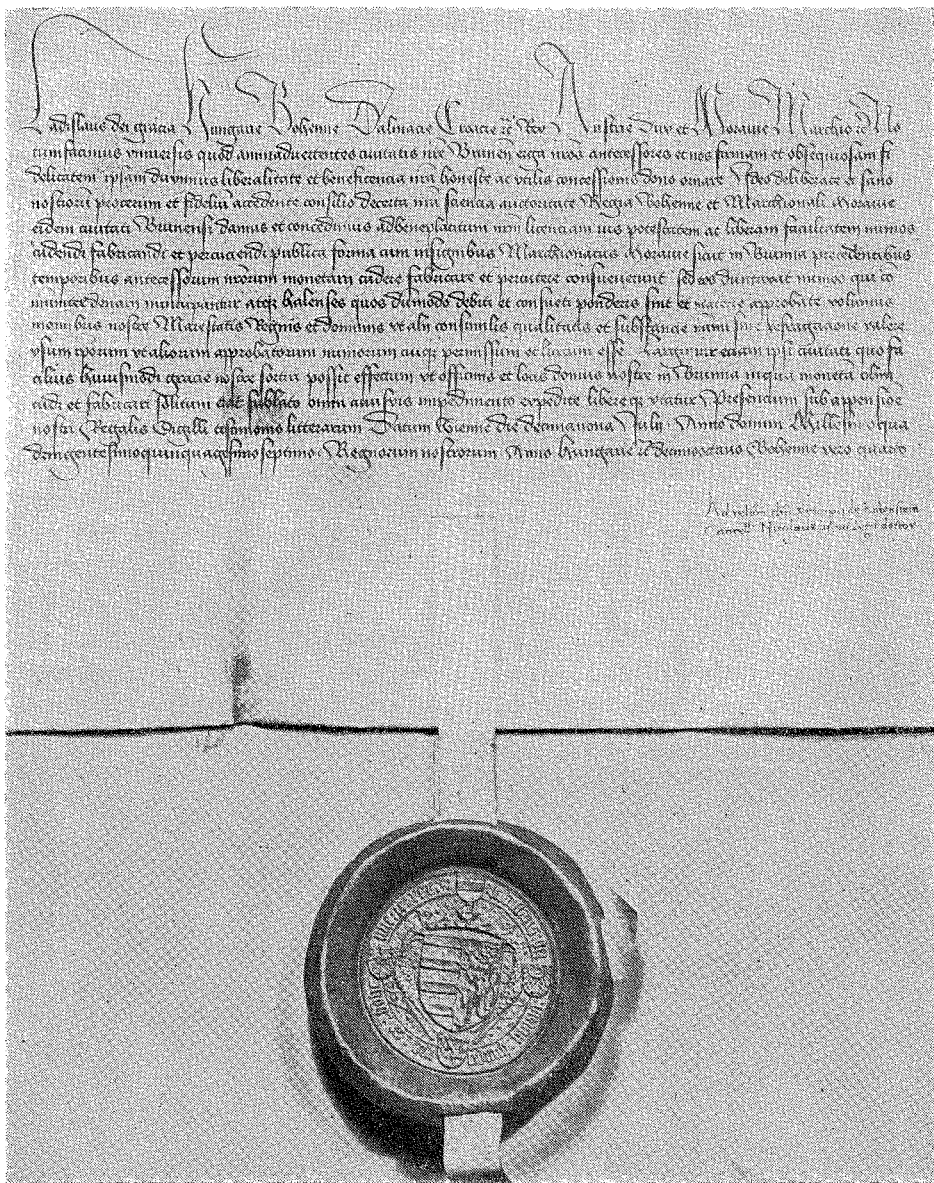 Ladislaus dei gracia Hungarie Bohemie Dalmacie Croacie etc̄ Rex Austrie Dux et Moravie Marchio etc̄ No
tumfacimus vniversis quod animadvertentes civitatis nr̄e Brunen̄ erga nr̄os antecessores et nos firmam et obsequiosam fi
delitatem ipsam duximus liberalitate et beneficencia nr̄a honeste ac vtilis concessionis dono ornare Ideo deliberate et sano
nostrorū procerum et fideliū accedente consilio de certa nr̄a sciencia auctoritate Regia Bohemie et Marchionali Moravie
eidem civitati Brunensi damus et concedimus ad beneplacitum nr̄m licenciam ius potestatem ac liberam facultatem nūmos
cudendi fabricandi et percuciendi publica forma cum insignibus Marchionatus Moravie sicut in Brunna precedentibus
temporibus antecessorum nr̄orum monetam cudere fabricare et percutere consueverunt sed eos dumtaxat nūmos qui co
muniter denarij nuncupantur atq halenses quos dūmodo debiti et consueti ponderis sint et materie approbate volumus
in omnibus nostre Maiestatis Regnis et dominijs vt alij consimilis qualitatis et substancie nūmi sine refragacione valere
vsum eorum vt aliorum approbatorum nūmorum cuiq permissum et licitum esse Largimur eciam ipsi civitati quo fa
cilius huiusmodi gracie nostre sortiri possit effectum vt officinis et locis domus nostre in Brunna in qua moneta olim
cudi et fabricari solitum est sublato omni cuiusvis impedimento expedite libereq vtatur Presencium sub appensione
nostri Regalis Sigilli testimonio litterarum Datum Vienne die decimanona Julij Anno domini Millesimo qua
dringentesimoquinquagesimoseptimo Regnorum nostrorum Anno Hungarie etc̄ decimooctavo Bohemie vero quarto
Ad relacionem dn̄i procopij de Rabenstein
Cancell. Nicolaus doctor